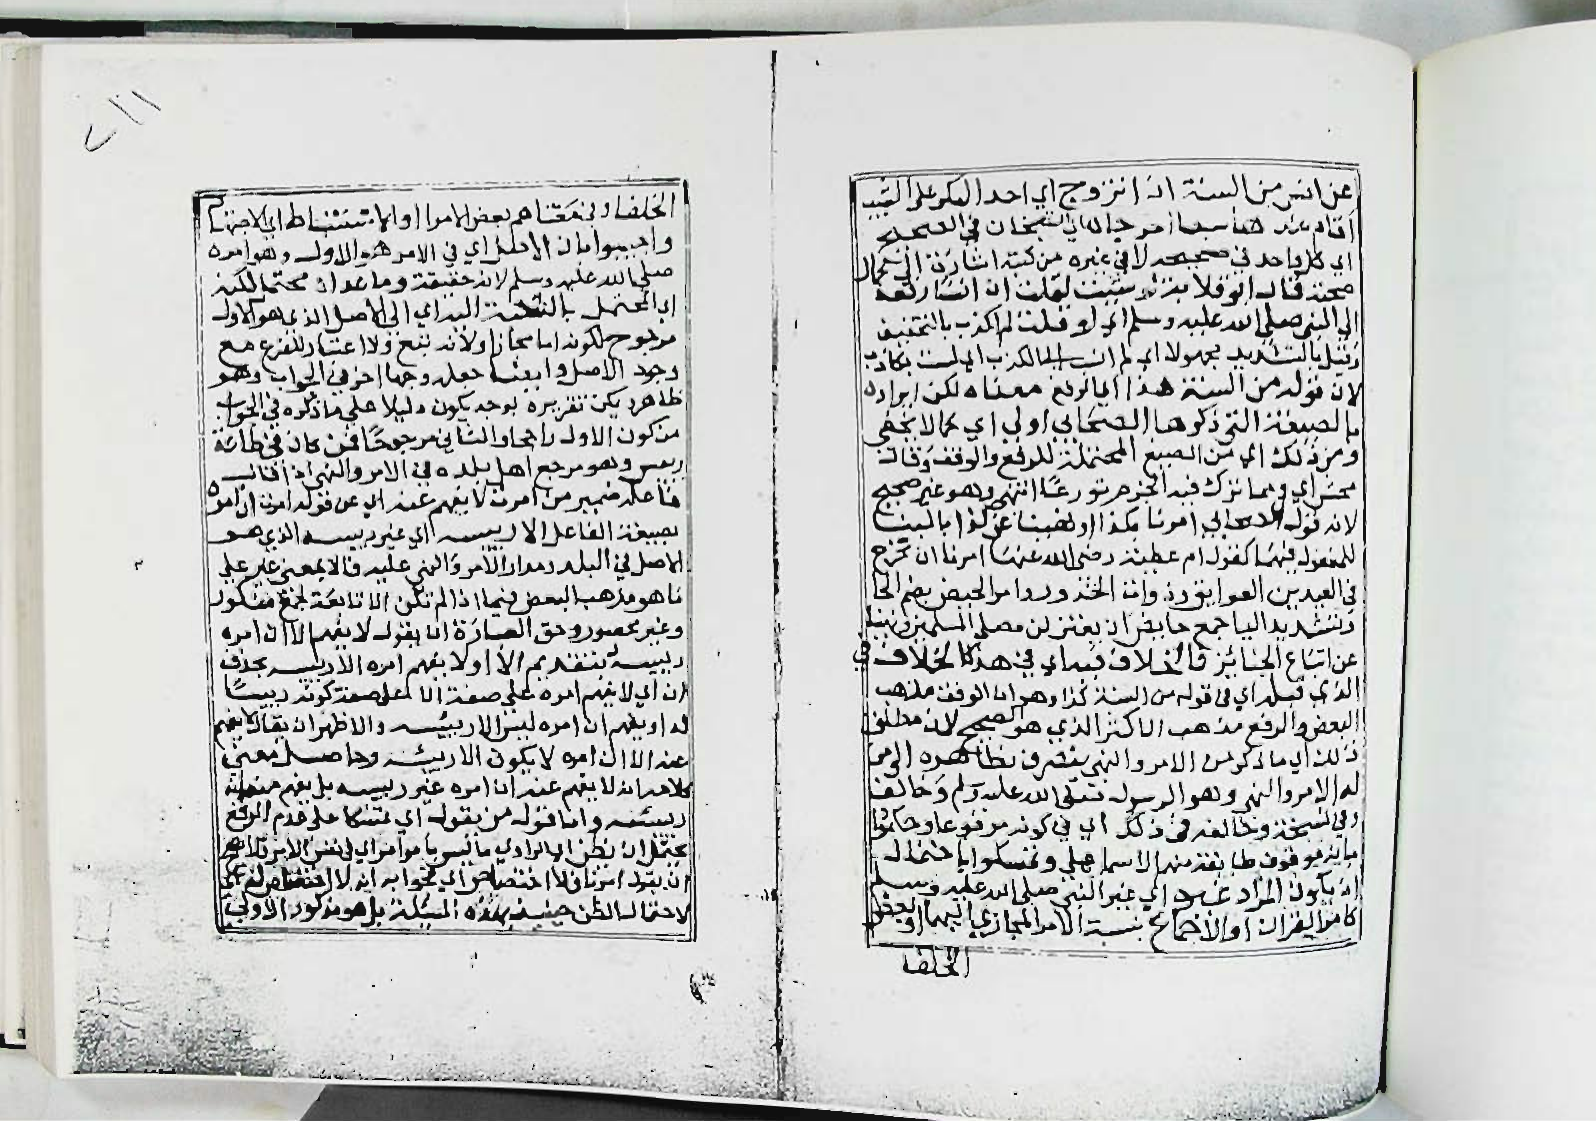 عن انس من السنة اذا تزوج اي احد البكر على الثيب
اقام عندها سبعا اخرجاه اي الشيخان في الصحيح
اي كل واحد في صحيحه لا في غيره من كتبه اشارة الى كمال
صحته قال ابو قلابة لو شئت لقلت ان انسا رفعه
الى النبي صلى الله عليه وسلم اي لو قلت لم اكذب بالتخفيف
وقيل بالتشديد مجهولا اي لم انسب الى الكذب اي لست بكاذب
لان قوله من السنة هذا اي الرفع معناه لكن ايراده
بالصيغة التي ذكرها الصحابي اولى اي كما لا يخفى
ومن ذلك اي من الصيغ المحتملة للرفع والوقف وقال
محش اي ومما ترك فيه الجزم تورعا انتهى وهو غير صحيح
لانه قول الصحابي امرنا بكذا او نهينا عن كذا بالبناء
للمفعول فيهما كقول ام عطية رضي الله عنها امرنا ان نخرج
في العيدين العواتق وذوات الخدور وامر الحيض بضم الحا
وتشديد اليا جمع حايض ان يعتزلن مصلى المسلمين ونهينا
عن اتباع الجنائز فالخلاف فيه اي في هذا كالخلاف في
الذي قبله اي في قوله من السنة كذا وهو ان الوقف مذهب
البعض والرفع مذهب الاكثر الذي هو الصحيح لان مطلق
ذلك اي ما ذكر من الامر والنهي ينصرف بظاهره الى من
له الامر والنهي وهو الرسول صلى الله عليه وسلم وخالف
وفي النسخة وخالفه في ذلك اي في كونه مرفوعا وحكموا
بانه موقوف طائفة منهم الاسماعيلي وتمسكوا باحتمال
ان يكون المراد غيره اي غير النبي صلى الله عليه وسلم
كامر القران او الاجماع بنسبة الامر المجازي اليهما او بعض
الخلفا
الخلفا وفي معناهم بعض الامرا او الاستنباط اي الاجتهاد
واجيبوا بان الاصل اي في الامر هو الاول وهو امره
صلى الله عليه وسلم لانه حقيقة وما عداه محتمل لكنه
اي المحتمل بالنسبة اليه اي الى الاصل الذي هو الاول
مرجوح لكونه اما مجازا ولانه تبع ولا اعتبار للفرع مع
وجود الاصل وايضا جعله وجها اخر في الجواب وهو
ظاهر يمكن تقريره بوجه يكون دليلا على ما ذكره في الجواب
من كون الاول راجحا والثاني مرجوحا فمن كان في طاعة
رييس وهو مرجع اهل بلده في الامر والنهي اذا قال
فاعله ضمير من امرت لا يفهم عنه اي عن قوله امرت ان امره
بصيغة الفاعل الا رييسه اي غير رييسه الذي هو
الاصل في البلد ومدار الامر والنهي عليه فالا بمعنى غير على
ما هو مذهب البعض فيما اذا لم تكن الا تابعة لجمع منكور
وغير محصور وحق العبارة ان يقول لا يفهم الا ان امره
رييسه بتقديم الا او لا يفهم امره الا رييسه بحذف
ان اي لا يفهم امره على صفة الا على صفة كونه رييسا
له او يفهم ان امره ليس الا رييسه والاظهر ان يقال لا يفهم
عنه الا ان امره لا يكون الا رييسه وحاصل معنى
كلامه انه لا يفهم عنه ان امره غير رييسه بل يفهم منه انه
رييسه واما قول من يقول اي متمسكا على عدم الرفع
يحتمل ان يظن اي الراوي ما ليس بامر امرا اي في نفس الامر
ان يقول امرنا فلا اختصاص اي لجوابه انه لا اختصاص له اي
لاحتمال الظن حينئذ بهذه المسئلة بل هو مذكور الاولى